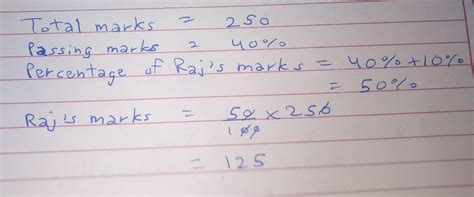 Total marks = 250
Passing marks = 40%
Percentage of Raj's marks = 40%+10%
= 50%
Raj's marks = 50/100 × 250
= 125